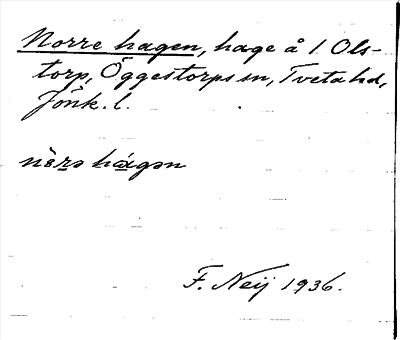 Norre hagen, hage å 1 Ols-
torp, Öggestorps sn, Tveta hd,
Jönk. l.
nörə hágən
F. Neij 1936.